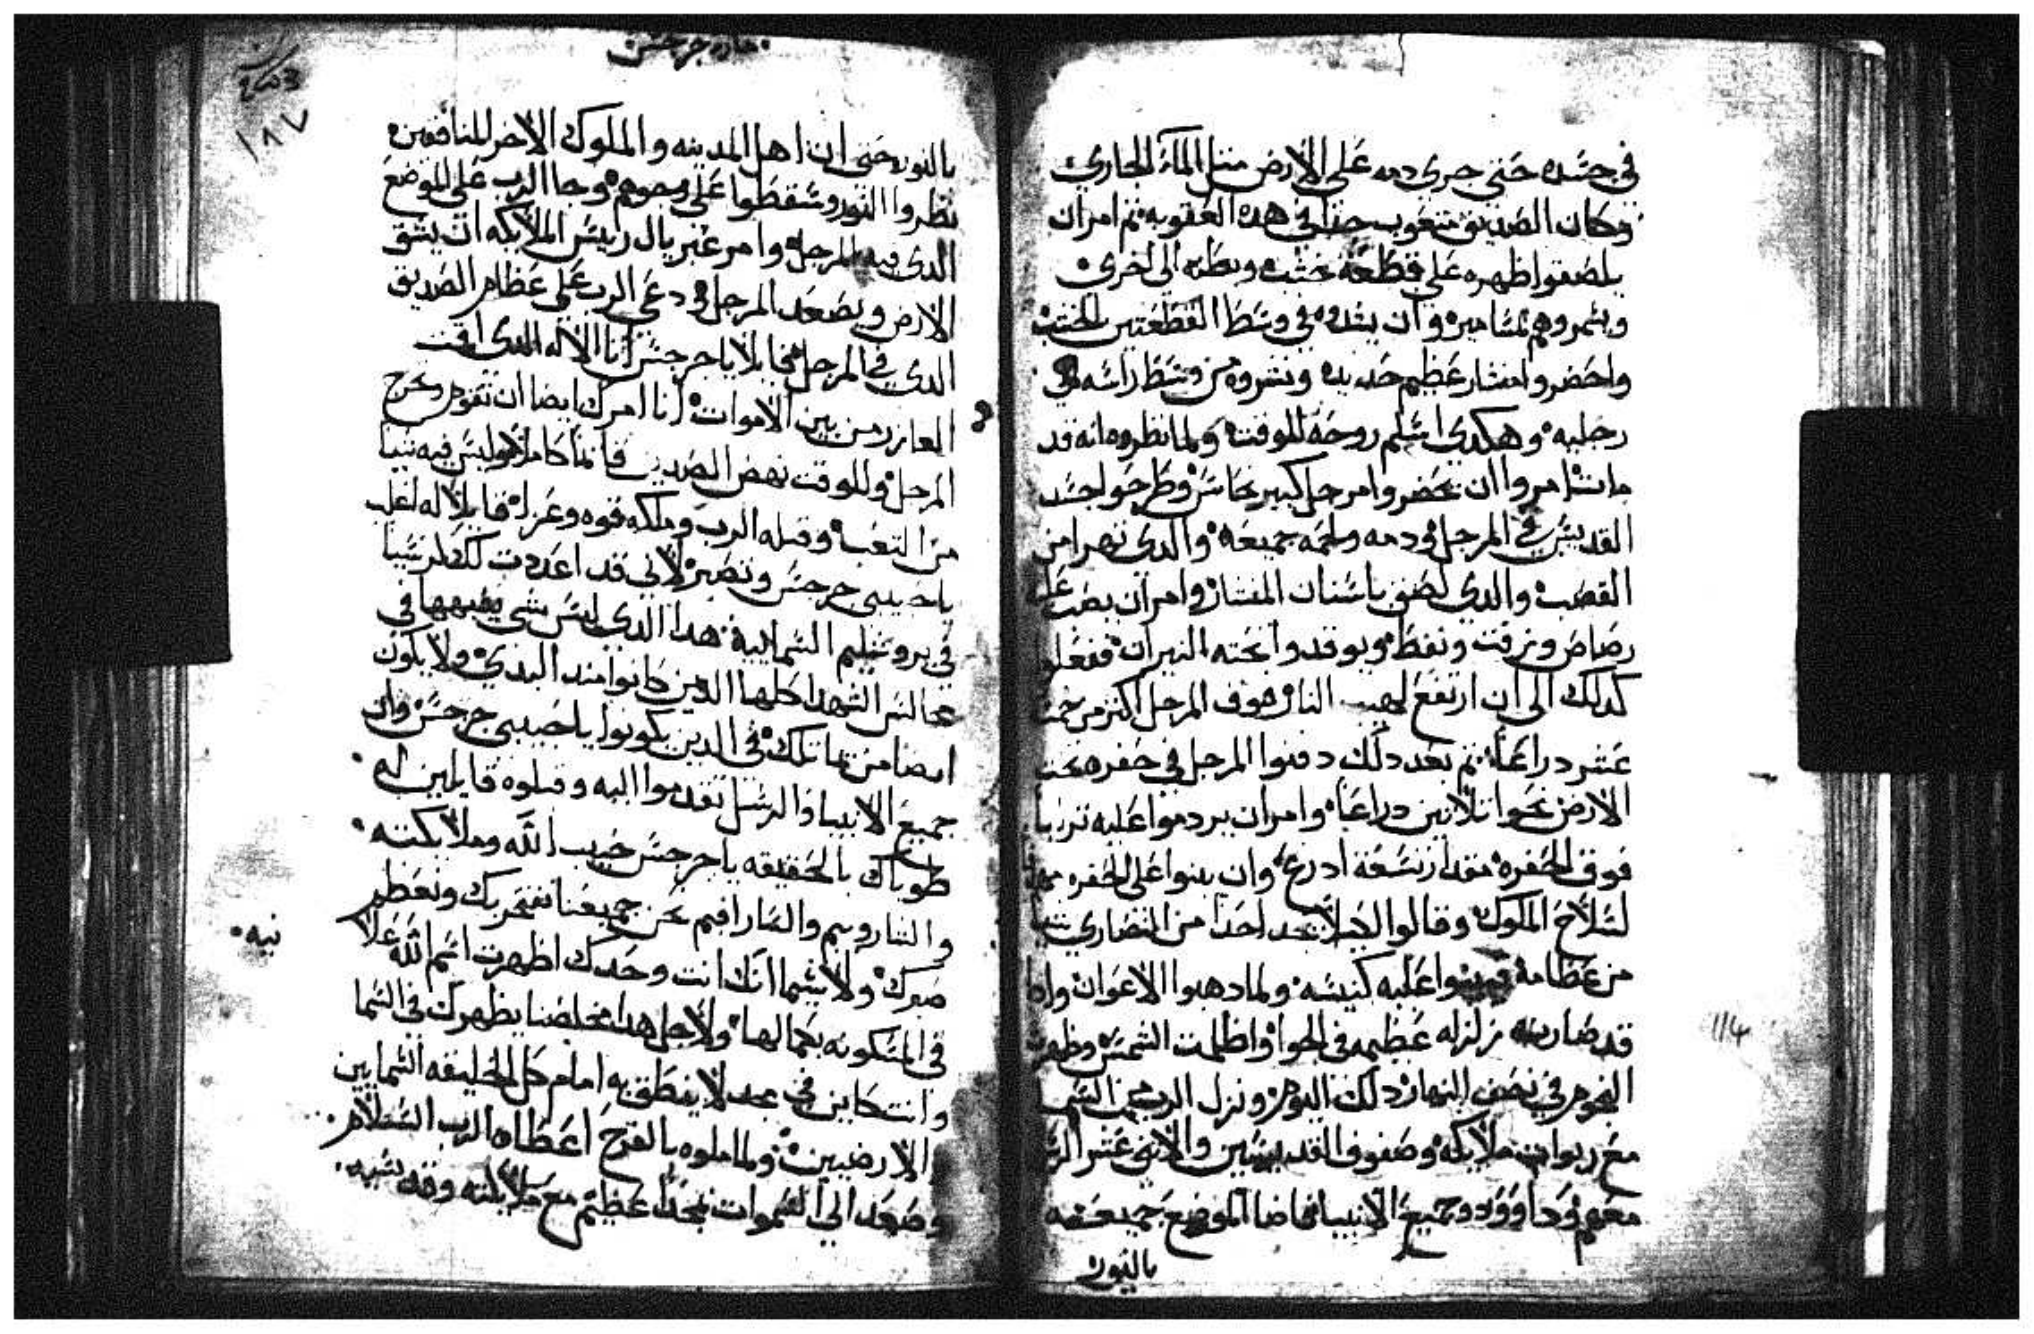 في جسده حتي جري دمه علي الارض متل المآء الجاري
وكان الصديق متعوب جدا في هده العقوبه تم امر ان
يلصقوا ظهره علي قطعة خشب وبطنه الي اخري
ويسمروهم بمسامير وان يشده في وسط القطعتين الخشب
واحضروا منشار عظيم حديد ونشروه من وسط راسه الي
رجليه وهكدي اسلم روحه للوقت ولما نظروه انه قد
مات امروا ان يحضروا مرجل كبير نحاس وطرحوا جسد
القديس في المرجل ودمه ولحمه جميعه والدي تهرا من
القصب والدي لصق باسنان المنشار وامر ان يصب عليه
رصاص وزفت ونفط ويوقدوا تحته النيران ففعلوا
كدلك الي ان ارتفع لهيب النار فوق المرجل اكتر من خمسة
عشر دراعا تم بعد دلك دفنوا المرجل في حفره تحت
الارض نحوا تلاتين دراعا وامر ان يردموا عليه ترابا
فوق الحفره مقدار تسعة ادرع وان يبنوا علي الحفره
لسلاح الملوك وقالوا ليلا يجد احدا من النصاري شيا
من عظامه فيبنوا عليه كنيسه ولما دهبوا الاعوان وادا
قد صارت زلزله عظيمه في الجوا واظلمت الشمس وظهرت
النجوم في نصف النهار دلك اليوم ونزل الرب من السما
مع ربوات ملايكه وصفوف القديسين والاتني عشر الرسل
معهم وداوود وجميع الانبيا فاضا الموضع جميعه
بالنور
جرجس
2003
١٨٧
بالنور حتي ان اهل المدينه والملوك الاخر المنافقين
نظروا النور وسقطوا علي وجوههم وجا الرب علي الموضع
الدي فيه المرجل وامر غبريال رييس الملايكه ان يشق
الارض ويصعد المرجل ودعي الرب علي عظام الصديق
الدي في المرجل قايلا يا جرجس انا الاله الدي اقمت
العازر من بين الاموات انا امرك ايضا ان تقوم وتخرج
المرجل وللوقت نهض الصديق قايما كاملا وليس فيه شيا
من التعب وقبله الرب وملكه قوه وعزا قايلا له اغلب
يا حبيبي جرجس وتصبر لاني قد اعددت لك كرسيا
في يروشليم السماييه هدا الدي ليس شي يشبهها في
مجالس الشهدا كلها الدين كانوا مند البدي ولا يكون
ايضا من يماتلك في الدين يكونوا يا حبيبي جرجس وان
جميع الانبيا والرسل تقدموا اليه وقبلوه قايلين له
طوباك بالحقيقه يا جرجس حبيب الله وملايكته
والشاروبيم والسارافيم نحن جميعنا نفتخر بك ونعظم
صبرك ولا سيما انك انت وحدك اظهرت اسم الله علانيه
في المسكونه بكمالها ولاجل هدا مخلصنا يظهرك في السما
وانت كاين في مجد لا ينطق به امام كل الخليقه السمايين
والارضيين ولما املوه بالفرح اعطاه الرب السلام
وصعد الي السموات بمجد عظيم مع ملايكته وقديسيه
114